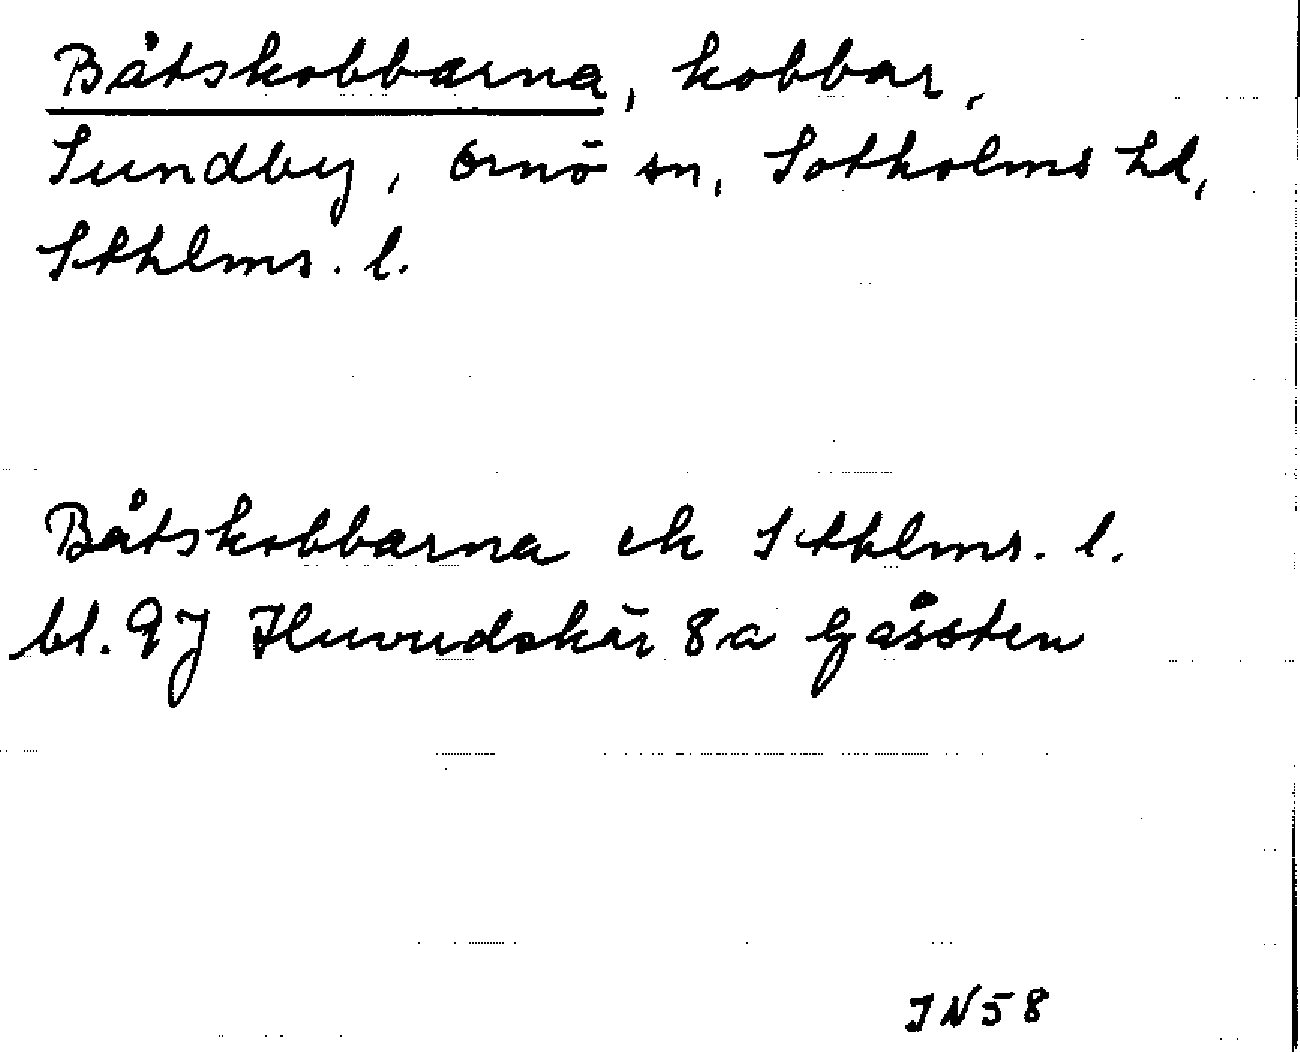 Båtskobbarna, kobbar,
Sundby, Ornö sn, Sotholms hd,
Sthlms. l.
Båtskobbarna ek Sthlms. l.
bl. 9J Huvudskär 8a Gåssten
IN58